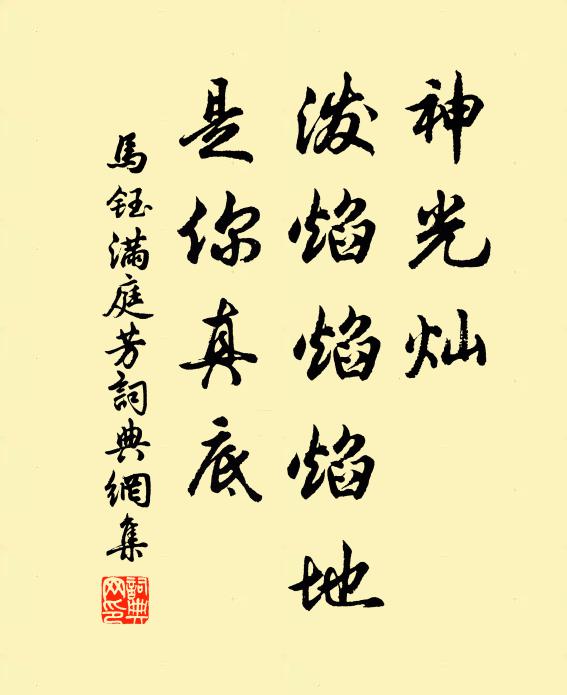 神光灿
泼焰焰焰地
是你真底
馬鈺满庭芳詞典網集
詞典网印